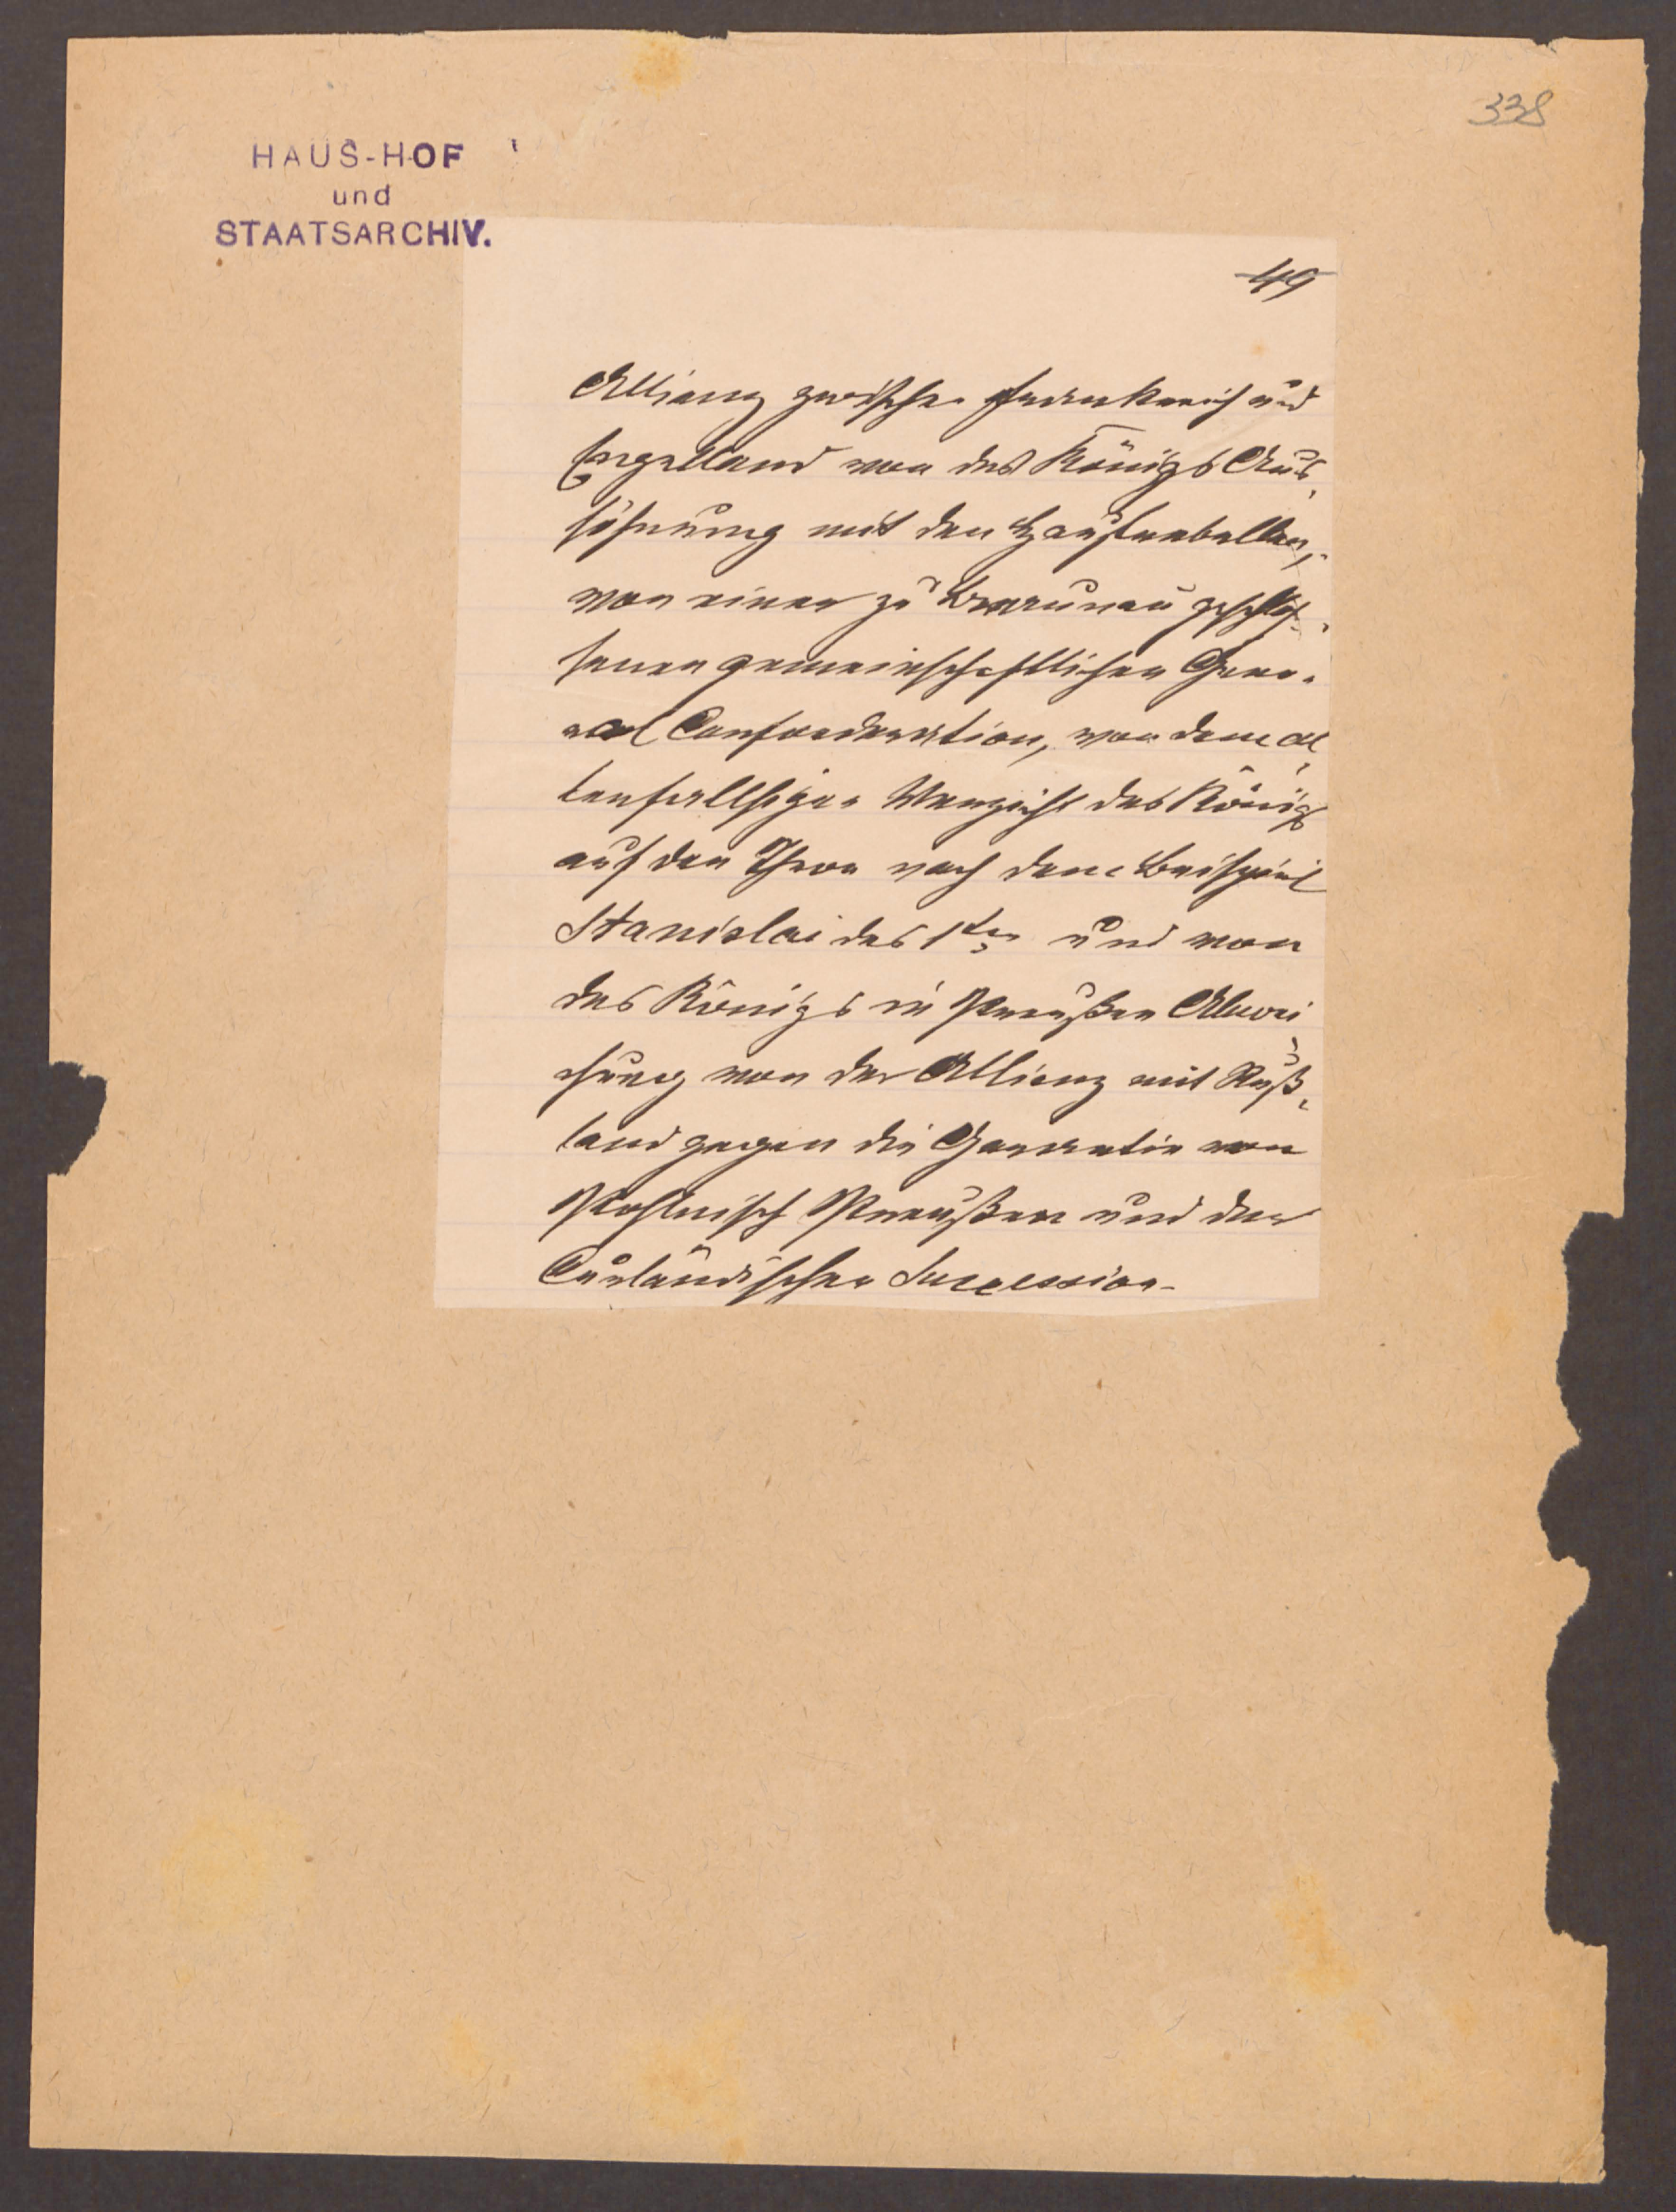 338
HAUS-HOF
und
STAATSARCHIV.
49
Allianz zwischen Frankreich und
Engelland von des Königs Aus¬
söhnung mit den
von einer zu geschlos¬
senen gemeinschaftlichen Gene¬
ral Confoederation, von dem al¬
lenfallsigen Verzicht des Königs
auf den Thron nach dem Beispiel
Stanislai des 1ten und von
des Königs in Preußen Abwei
chung von der Allianz mit Ruß¬
land gegen die Garantie von
Pohlnisch Preußen und der
Curländischen Succession.